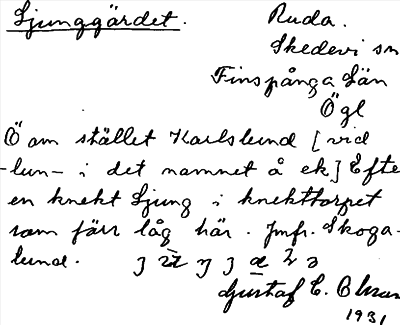 Ljunggärdet. Ruda.
Skedevi sn
Finspånga län
Ögl
Ö om stället Karlslund [vid
-lun- i det namnet å ek] Efte
en knekt Ljung i knekttorpet
som förr låg här. Jmfr. Skoga-
lund.
Gustaf E.
1931